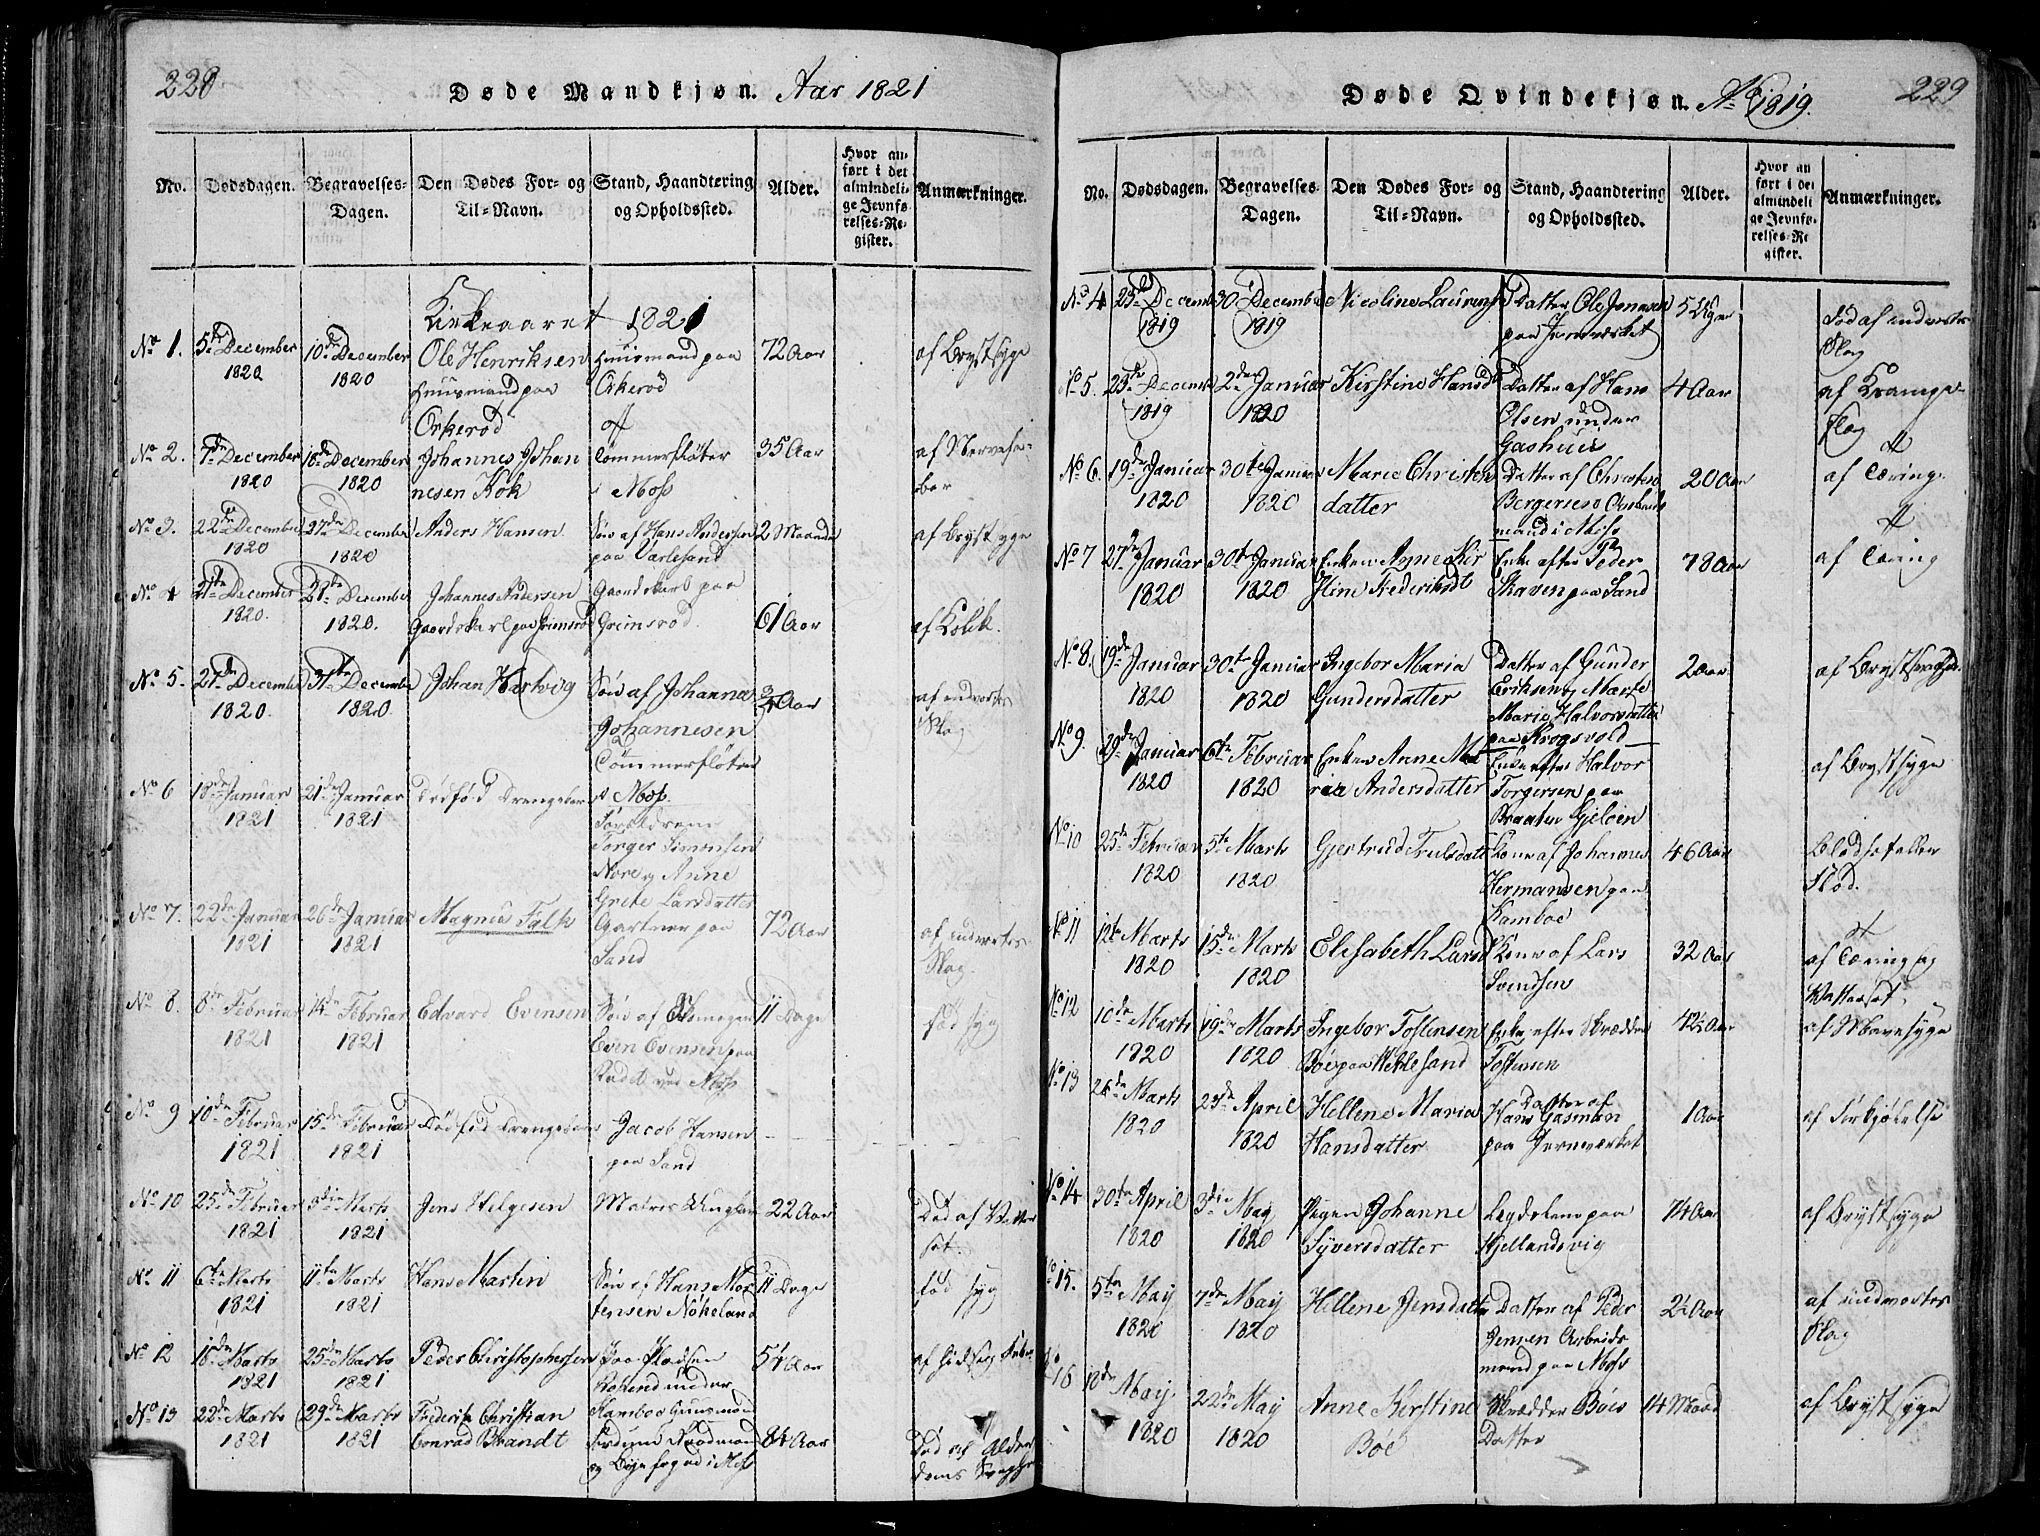 228
Døde Mandkjøn. Aar 1821
No.
Dødsdagen.
Begravelses-
Dagen.
Den Dødes For- og
Til-Navn.
Stand, Haandtering
og Opholdssted.
Alder.
Hvor an-
ført i det
almindeli-
ge Jevnfø-
relses-Re-
gister.
Anmærkninger.
Kirkeaaret 1821
No 1. 5te December 1820
10de December 1820
Ole Henriksen
Huusmand paa
Orkerød
Huusmand paa
Orkerød
72 Aar
af Brystsyge
No 2. 7de December 1820
18de December 1820
Johannes Johan
nesen Kok
Tømmerfløter
i Moss
35 Aar
af Nervefe-
ber
No 3. 22de December 1820
27de December 1820
Anders Hansen
Søn af Hans Andersen
paa Varlesand
2 Maaneder
af Brystsyge
No 4 21de December 1820.
27de December 1820.
Johannes Andersen
Gaardskarl paa Grimsrød
Gaardskarl paa
Grimsrød.
61 Aar
af Kolik.
No 5. 27de December 1820.
31te December 1820.
Johan Hartvig
Søn af Johannes
Johannesen
Tømmerfløter
i Moss.
3/4 Aar
af indvortes
Slag
No 6 18de Januar 1821
21de Januar 1821
Dødfød Drengebarn
Forældrene
Torger Simonsen
Nore og Anne
Grete Larsdatter
No 7. 22de Januar 1821
26de Januar 1821
Magnus Falk
Gartner paa
Sand
72 Aar
af indvortes
Slag.
No 8. 8de Februar 1821
14de Februar 1821
Edvard Evensen
Søn af
Even Evensen paa
ved Moss
11 Dage
fød syg
No 9 10de Februar 1821
15de Februar 1821
Dødfød Drengebarn
Jacob Hansen
paa Sand
No 10 25de Februar 1821
3die Marts 1821
Jens Helgesen
22 Aar
Død af Vatter
sot.
No 11 6te Marts 1821
11te Marts 1821
Hans Martin
Søn af Hans Mor
tensen Nøkeland
11 Dage
fød syg
No 12 18de Marts 1821
25de Marts 1821
Peder Christophersen
under
Kamboe
54 Aar
No 13 22de Marts 1821
29de Marts 1821
Frederik Christian
Conrad Brandt
Raadmand
og Byefoged i Moss
84 Aar
Død af Alder
doms Svaghed
Døde Qvindekjøn. Ao 1819.
229
No.
Dødsdagen.
Begravelses-
Dagen.
Den Dødes For- og
Til-Navn.
Stand, Haandtering
og Opholdssted.
Alder.
Hvor an
ført i det
almindeli
ge Jevnfø
relses-Re
gister.
Anmærkninger.
No 4 23de December 1819
30 December 1819
Nicoline
Datter Ole Jensen
paa Jernværket
5 Uger
død af indvortes
Slag
No 5. 23de December 1819
2den Januar 1820
Kirstine Hansdt
Datter af Hans
Olsen under
Gashuus
4 Aar
af Krampe-
slag
No 6. 19de Januar 1820
30te Januar 1820
Marie Christen
datter
Datter af Christen
Bergersen Arbeids
mand i Moss
20 Aar
af Tæring.
No 7 27de Januar 1820
30te Januar 1820
Enken Anne Kir
stine Frederiksdt
Enke efter Peder
Skaven paa Sand
78 Aar
af Tæring
No 8. 19de Januar 1820
30te Januar 1820
Ingebor Maria
Gundersdatter
Datter af Gunder
Eriksen og Marte
Marie Halvorsdatter
paa Krogsvold
2 Aar
af Brystsvaghed.
No 9. 29de Januar 1820
6te Februar 1820
Enken Anne Ma
ria Andersdatter
Enke efter Halvor
Torgersen paa
Braaten Gjeløen
af Brystsyge
No 10 25de Februar 1820
5te Marts 1820
Gjertrud Trulsdatt
Kone af Johannes
Hermandsen paa
Kamboe
46 Aar
No 11 12te Marts 1820
15de Marts 1820
Elisabeth Larsd
Kone af Lars
Svendsen
32 Aar
af Tæring og
Vattersot.
No 12 10de Marts 1820
19de Marts 1820
Ingebor Tostensen
Bøe paa Ketlesand
Enke efter Skrædder
Tostensen
42 Aar
af Mavesyge
No 13 26de Marts 1820
23de April 1820
Hellene Maria
Hansdatter
Datter af
Hans Gasman
paa Jernværket
1 Aar
af Forkjølelse
No 14 30te April 1820
3die May 1820
Pigen Johanne
Syversdatter
Lægdslem paa
Kjellandsvig
74 Aar
af Brystsyge
No 15. 5te May 1820
7de May 1820
Hellene Jensdatter
Datter af Peder
Jensen Arbeids
mand paa Moss
2 1/2 Aar
af indvortes
Slag
No 16 18de May 1820
22de May 1820
Anne Kirstine
Bøe
Skrædder Bøes
Datter
14 Maaned
af Brystsyge